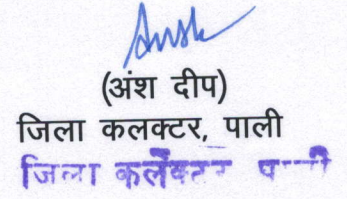 (अंश दीप)
जिला कलक्टर, पाली
जिला कलेक्टर